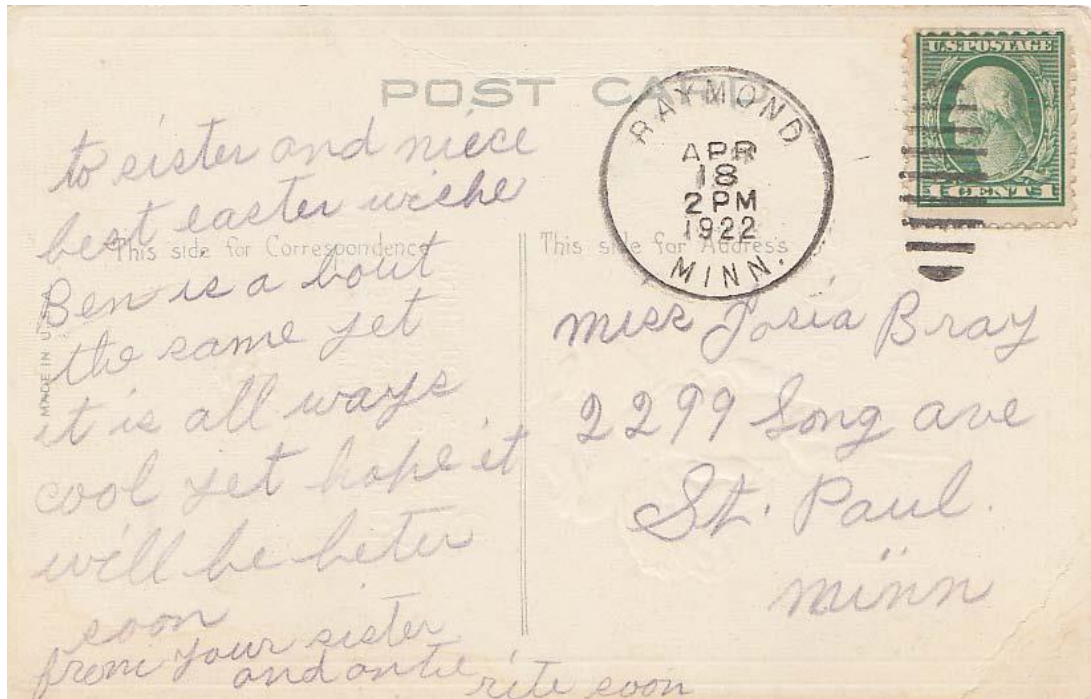 POST CARD
U.S. POSTAGE
1 CENT 1
RAYMOND
APR
18
2 PM
1922
MINN.
This side for Correspondence
This side for Address
MADE IN U.S.A.
to sister and niece
best easter wiche
Ben is a bout
the same yet
it is all ways
cool yet hope it
will be beter
soon
from your sister
and antie
rite soon
Miss Josia Bray
2299 Long ave
St. Paul.
Minn